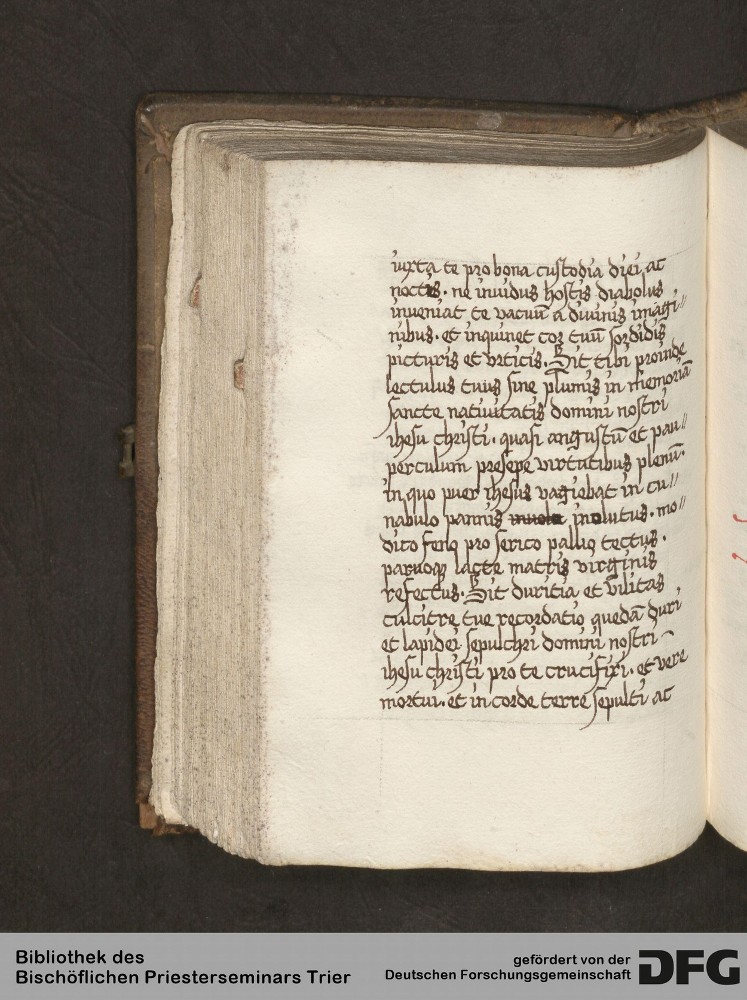 iuxta te pro bona custodia diei ac
noctis. ne inuidus hostis diabolus
inueniat te vacuū a diuinis imagi//
nibus. et inquinet cor tuū sordidis
picturis et vrticis. Sit tibi proinde
lectulus tuus sine plumis in memoriā
sancte natiuitatis domini nostri
ihesu christi. quasi angustū et pau//
perculum presepe virtutibus plenū.
in quo puer ihesus vagiebat in cu//
nabulo pannis inuolutus. mo//
dico feno pro serico pallio tectus.
paruoqꝫ lacte matris virginis
refectus. Sit duritia et vilitas
culcitre tue recordatio quedā duri
et lapidei sepulchri domini nostri
ihesu christi pro te crucifixi. et vere
mortui. et in corde terre sepulti ac
Bibliothek des
Bischöflichen Priesterseminars Trier
gefördert von der
Deutschen Forschungsgemeinschaft
DFG